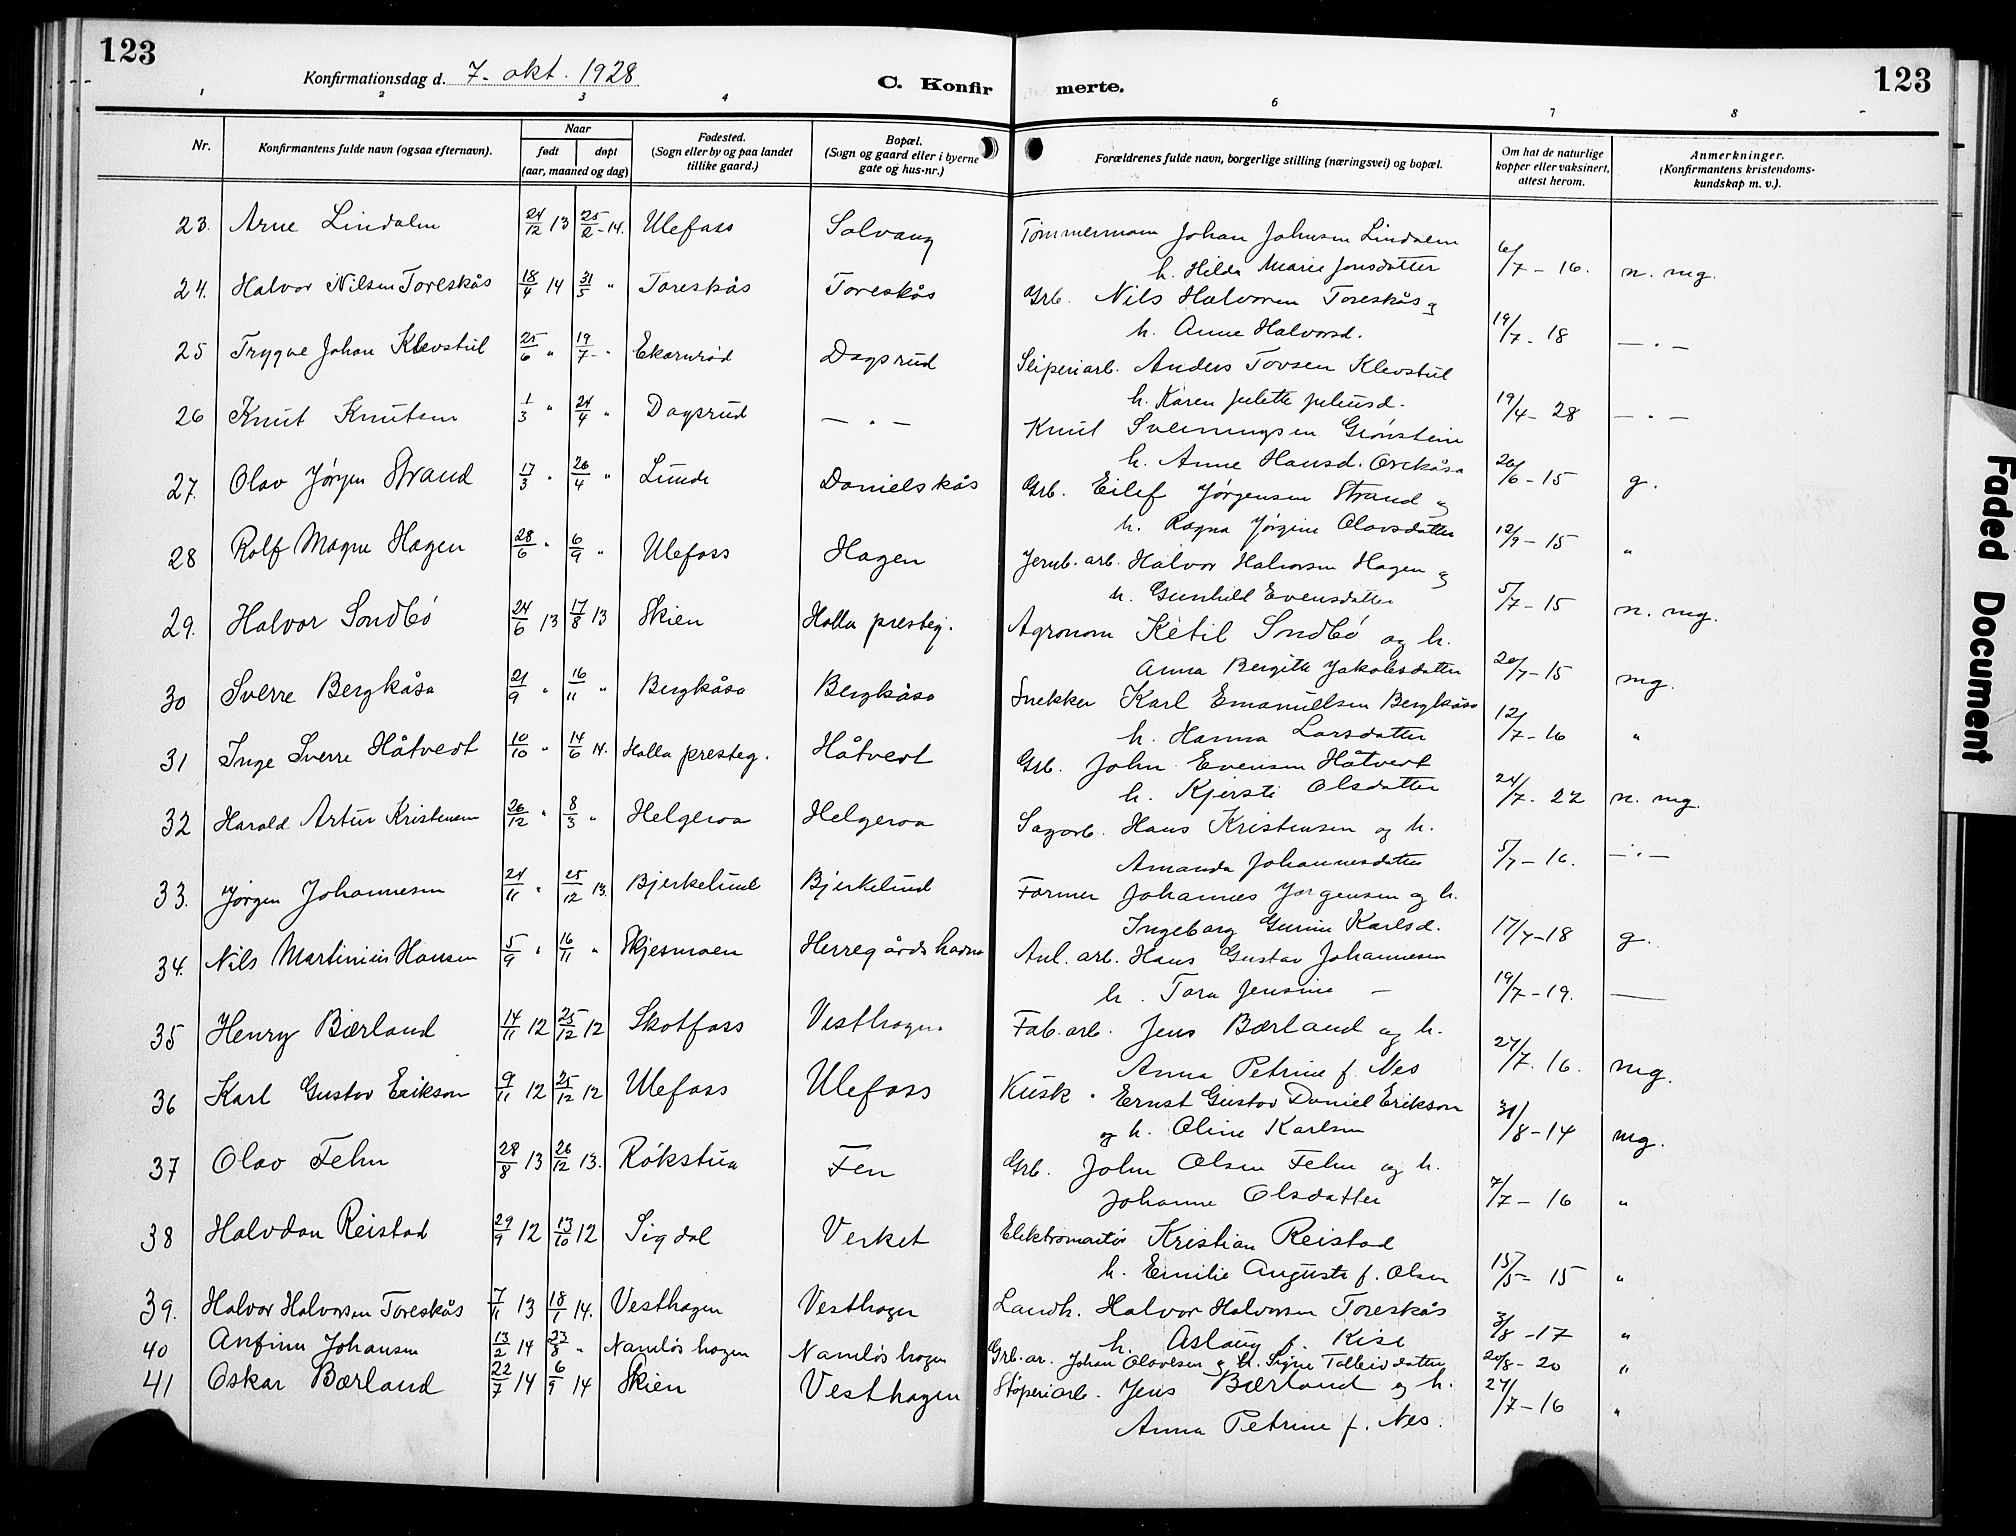 123
Konfirmationsdag d. 7. okt. 1928
C. Konfirmerte.
123
1 2 3 4 6 7 8
Nr.
Konfirmantens fulde navn (ogsaa efternavn).
Naar
født døpt
(aar, maaned og dag)
Fødested.
(Sogn eller by og paa landet
tillike gaard.)
Bopæl.
(Sogn og gaard eller i byerne
gate og hus-nr.)
Forældrenes fulde navn, borgerlige stilling (næringsvei) og bopæl.
Om hat de naturlige
kopper eller vaksinert,
attest herom.
Anmerkninger.
(Konfirmantens kristendoms-
kundskap m. v.).
23. Arne Lindalen 24/12 13 25/2 - 14. Ulefoss Solvang Tømmermann Johan Johnsen Lindalen
h. Hilda Marie Jonsdatter 6/7 - 16. n. mg.
24. Halvor Nilsen Toreskås 18/4 14 31/5 " Toreskås Toreskås Grb. Nils Halvorsen Toreskås og
h. Anne Halvorsd. 19/7 - 18 — " —
25 Trygve Johan Klevstul 25/6 " 19/7 - " Ekornrød Dagsrud Sliperiarb. Anders Tovsen Klevstul
h. Karen Julette Juliusd. 19/4 - 28 — " —
26 Knut Knutsen 1/3 " 24/4 " Dagsrud — " — Knut Sveinungsen Grønstein
h. Anne Hansd. Orekåsa 26/6 - 15 g.
27. Olav Jørgen Strand 17/3 " 26/4 " Lunde Danielskås Grb. Eilef Jørgensen Strand og
h. Ragna Jørgine Olavsdatter 12/9 - 15 "
28 Rolf Magne Hagen 28/6 " 6/9 " Ulefoss Hagen Jernb. arb. Halvor Halvorsen Hagen og
h. Gunhild Evensdatter 5/7 - 15 n. mg.
29. Halvor Sondbø 24/6 13 17/8 13 Skien Holla presteg. Agronom Ketil Sndbø og h.
Anna Bergitte Jakobsdatter 20/7 - 15 mg.
30 Sverre Bergkåsa 21/9 " 16/11 " Bergkåsa Bergkåsa Snekker Karl Emanuelsen Bergkåsa
h. Hanna Larsdatter 12/7 - 16 "
31 Inge Sverre Håtvedt 10/10 " 14/6 14. Holla presteg. Håtvedt Grb. John Evensen Håtvedt
h. Kjersti Olsdatter 24/7 - 22 n. mg.
32 Harald Artur Kristensen 26/12 " 8/3 " Helgeroa Helgeroa Sagarb. Hans Kristensen og h.
Amanda Johannesdatter 5/7 - 16. — " —
33. Jørgen Johannesen 24/11 " 25/12 13. Bjerkelund Bjerkelund Former Johannes Jørgensen og h.
Ingeborg Gurine Karlsd. 17/7 - 18 g.
34. Nils Martinius Hansen 5/9 " 16/11 " Skjesmoen Herregårdshavna Anl. arb. Hans Gustav Johannesen
h. Tora Jensine — 19/7 - 19. —
35 Henry Bærland 14/11 12 25/12 12 Skotfoss Vesthagen Fab. arb. Jens Bærland og h.
Anna Petrine f. Nes 27/7 - 16. mg.
36 Karl Gustav Erikson 9/11 12 25/12 12 Ulefoss Ulefoss Kusk. Ernst Gustav Daniel Erikson
og h. Oline Karlsen 31/8 - 14 mg.
37 Olav Fehn 28/8 13 26/12 13. Røkstua Fen Grb. John Olsen Fehn og h.
Johanne Olsdatter 7/7 - 16 "
38 Halvdan Reistad 29/9 12 13/10 12 Sigdal Verket Elektromontør Kristian Reistad
h. Emilie Augusta f. Olsen 15/5 - 15 "
39. Halvor Halvorsen Toreskås 7/11 13 18/1 14. Vesthagen Vesthagen Landh. Halvor Halvorsen Toreskås
h. Aslaug f. Kise 3/8 - 17 "
40 Anfinn Johansen 13/2 14 23/8 " Namløshagen Namløshagen Grb. ar. Johan Olavesen og h. Signe Tollevsdatter 20/8 - 20 "
41 Oskar Bærland 22/7 14 6/9 14 Skien Vesthagen Støperiarb. Jens Bærland og h.
Anna Petrine f. Nes. 27/7 - 16 "
Faded Document